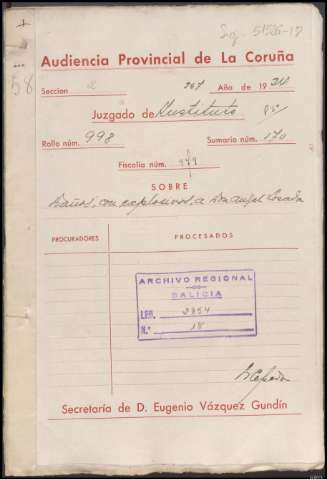 Sg. 5126-17
58
Audiencia Provincial de La Coruña
Seccion 2 267 Año de 1934
Juzgado de Instituto
Rollo núm. 998 Sumario núm. 170
Fiscalia núm. 979
SOBRE
Daños, con explosivos, a Don Angel Losada
PROCURADORES PROCESADOS
ARCHIVO REGIONAL
GALICIA
LEG. 2954
N.º 18
Secretaría de D. Eugenio Vázquez Gundín